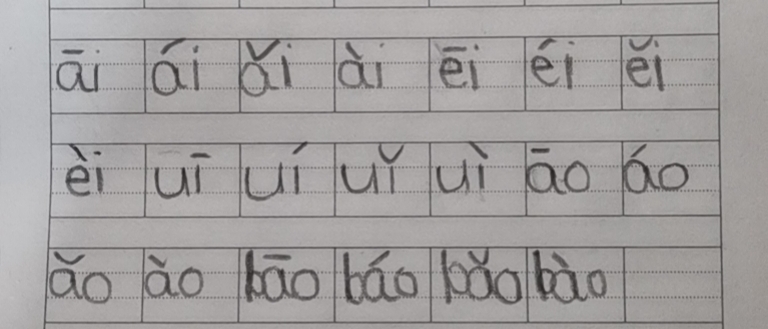 āi ái ǎi ài ēi éi ěi
èi uī uí uǐ uì āo áo
ǎo ào bāo báo bǎo bào